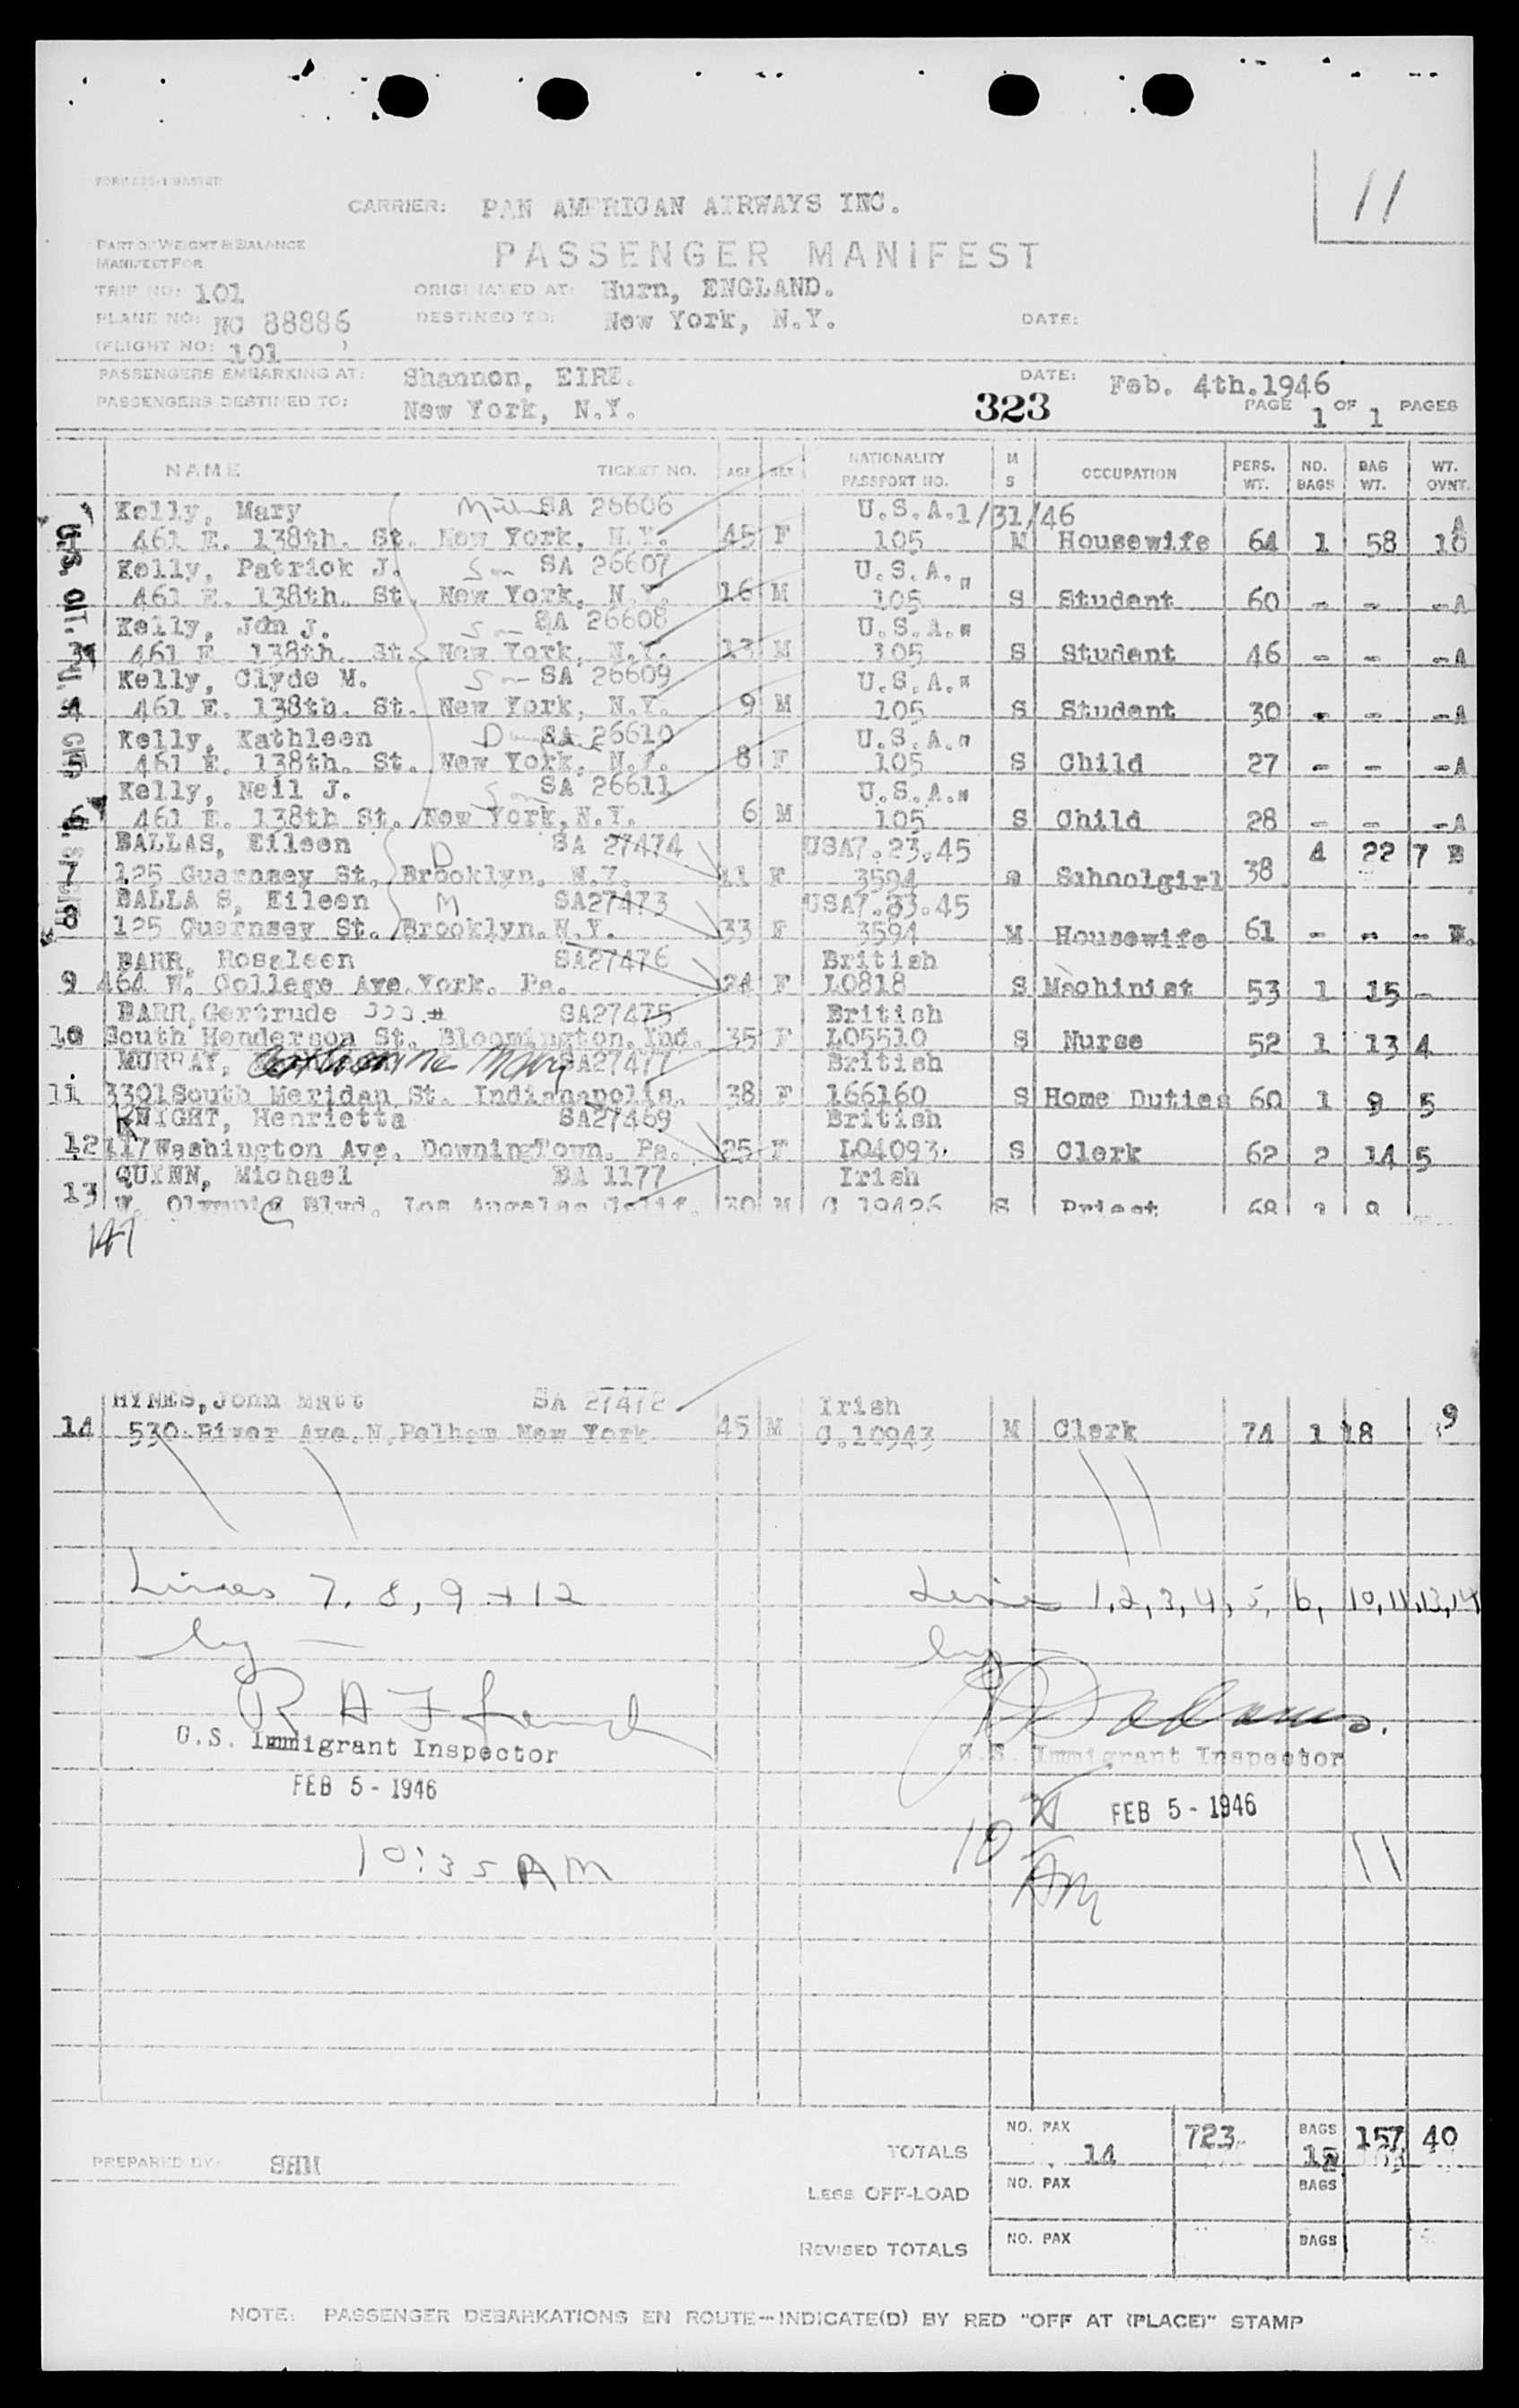 11
CARRIER: PAN AMERICAN AIRWAYS INC.
PART OF WEIGHT & BALANCE
MANIFEST FOR
PASSENGER MANIFEST
TRIP NO: 101 ORIGINATED AT: Hurn, ENGLAND.
PLANE NO: NC 88886 DESTINED TO: New York, N.Y. DATE:
(FLIGHT NO: 101 )
PASSENGERS EMBARKING AT: Shannon, EIRE. DATE: Feb. 4th.1946
PASSENGERS DESTINED TO: New York, N.Y. 323 PAGE 1 OF 1 PAGES
NAME TICKET NO. AGE SEX NATIONALITY PASSPORT NO. M S OCCUPATION PERS. WT. NO. BAGS BAG WT. WT. OVNT.
Kelly, Mary SA 26606 U.S.A.1/31/46 A
461 E. 138th. St. New York, N.Y. 45 F 105 M Housewife 64 1 58 10
Kelly, Patrick J. Son SA 26607 U.S.A. "
461 E. 138th. St. New York, N.Y. 16 M 105 S Student 60 - - -A
Kelly, John J. Son SA 26608 U.S.A."
461 E. 138th. St. New York, N.Y. 13 M 105 S Student 46 - - -A
Kelly, Clyde M. Son SA 26609 U.S.A."
4 461 E. 138th. St. New York, N.Y. 9 M 105 S Student 30 - - -A
Kelly, Kathleen Daughter SA 26610 U.S.A."
5 461 E. 138th. St. New York, N.Y. 8 F 105 S Child 27 - - -A
Kelly, Neil J. Son SA 26611 U.S.A."
6 461 E. 138th St. New York,N.Y. 6 M 105 S Child 28 - - -A
BALLAS, Eileen D SA 27474 USA7.23.45 4 22 7 B
7 125 Guernsey St. Brooklyn. N.Y. 11 F 3594 S Sahnolgirl 38
BALLA S, Eileen M SA27473 USA7.23.45
8 125 Guernsey St. Brooklyn.N.Y. 33 F 3594 M Housewife 61 - - - B.
BARR, Rosaleen SA27476 British
9 464 W. College Ave.York. Pa. 24 F L0818 S Machinist 53 1 15 -
BARR,Gertrude 333.# SA27475 British
10 South Henderson St. Bloomington.Ind. 35 F L05510 S Nurse 52 1 13 4
MURRAY, Catherine Mary SA27477 British
11 3301South Meridan St. Indianapolis. 38 F 166160 S Home Duties 60 1 9 5
KNIGHT, Henrietta SA27469 British
12 117Washington Ave. DowningTown. Pa. 25 F L04093. S Clerk 62 2 14 5
QUINN, Michael BA 1177 Irish
13 W. Olympic Blvd. Los Angeles Calif. 30 M C 19426 S Priest 68
HYNES,John Matt SA 27472 Irish
14 530 River Ave.N.Pelham New York 45 M C.10943 M Clerk 74 1 18 9
Lines 7, 8, 9 + 12 Lines 1,2,3,4,5,6, 10,11,13,14
by — by —
U.S. Immigrant Inspector U.S. Immigrant Inspector
FEB 5 - 1946 FEB 5 - 1946
10:35 AM 10 AM
TOTALS NO. PAX 14 723 BAGS 157 40
PREPARED BY:
LESS OFF-LOAD NO. PAX BAGS
REVISED TOTALS NO. PAX BAGS
NOTE: PASSENGER DEBARKATIONS EN ROUTE—INDICATE(D) BY RED "OFF AT (PLACE)" STAMP